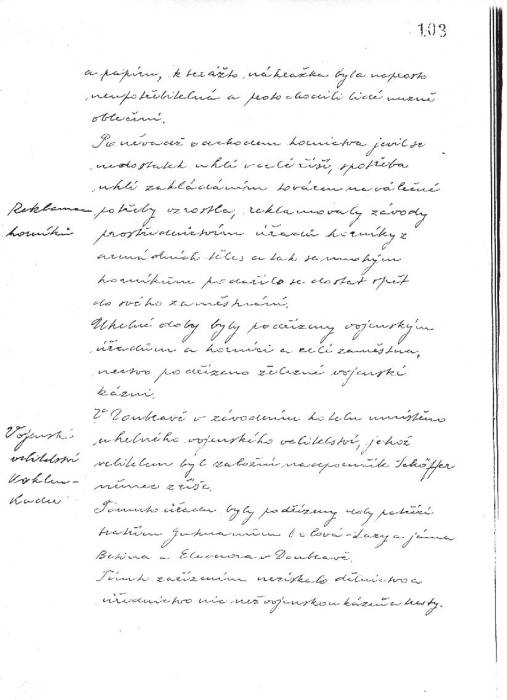 103
a papíru, k tvrážto náhražka byla naprosto
neupotřebitelná a proto chodili lidé nuzně
oblečeni.
Poněvadž odchodem hornictva jevil se
nedostatek uhlí v celé říši, spotřeba
uhlí zakládáním továren na válečné
Reklamace
horníků
potřeby vzrostla, reklamovaly závody
prostřednictvím úřadů horníky z
armádních těles a tak se mnohým
horníkům podařilo se dostat zpět
do svého zaměstnání.
Uhelné doly byly podřízeny vojenským
úřadům a horníci a celé zaměstna,
nectvo podřízeno železné vojenské
kázni.
Vojenské
velitelství
V Doubravě v závodním hotelu umístěno
uhelného vojenského velitelství, jehož
velitelem byl záložní nadporučík Schöffer
němec z říše.
Tomuto úřadu byly podřízeny doly patřící
bratřím Gutmannům Orlová-Lazy a jáma
Betina a Eleonora v Doubravě.
Tímto zařízením nezískalo dělnictvo a
úřednictvo nic než vojenskou kázeň a tresty.